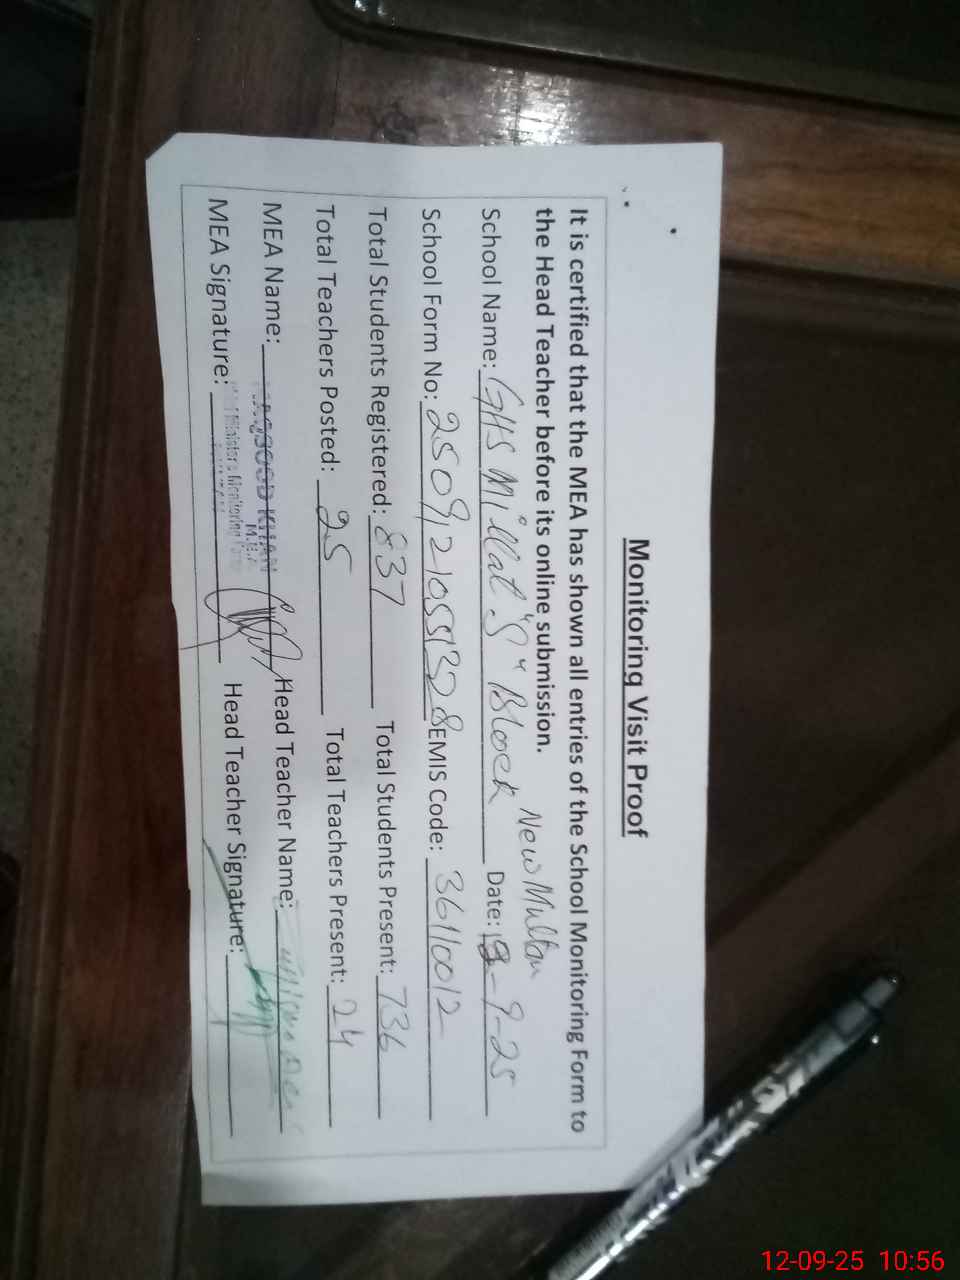 Monitoring Visit Proof
It is certified that the MEA has shown all entries of the School Monitoring Form to
the Head Teacher before its online submission.
New Multan
School Name: GHS Millat "S" Block Date: -9-25
School Form No: EMIS Code: 36110012
Total Students Registered: 837 Total Students Present: 736
Total Teachers Posted: 25 Total Teachers Present: 24
MEA Name: MAQSOOD KHAN Head Teacher Name:
M.E.A
MEA Signature: Head Teacher Signature:
12-09-25 10:56